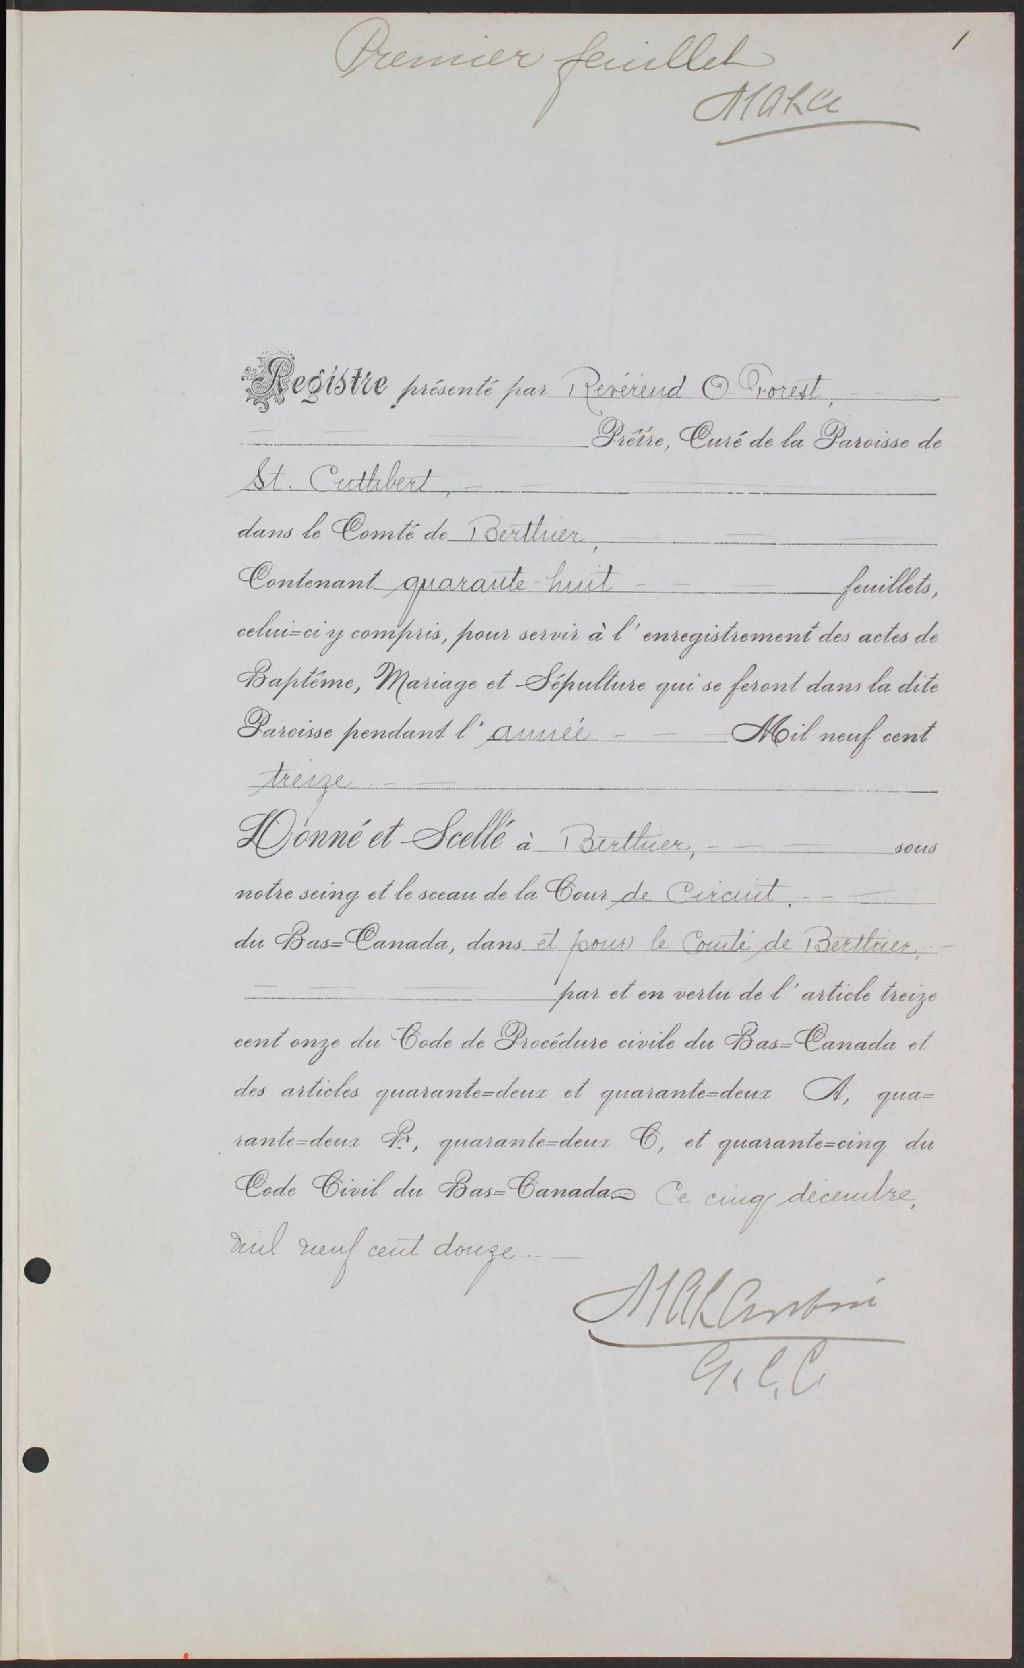 Premier feuillet
1
Registre présenté par Revérend O. Forest,
Prêtre, Curé de la Paroisse de
St. Cuthbert,
dans le Comté de Berthier,
Contenant quarante-huit feuillets,
celui=ci y compris, pour servir à l'enregistrement des actes de
Baptême, Mariage et Sépulture qui se feront dans la dite
Paroisse pendant l'année Mil neuf cent
treize
Donné et Scellé à Berthier, sous
notre seing et le sceau de la Cour de Circuit,
du Bas=Canada, dans et pour le Comté de Berthier,
par et en vertu de l'article treize
cent onze du Code de Procédure civile du Bas=Canada et
des articles quarante=deux et quarante=deux A, qua=
rante=deux B, quarante=deux C, et quarante=cinq du
Code Civil du Bas=Canada Ce cinq décembre,
mil neuf cent douze
G. C. C.